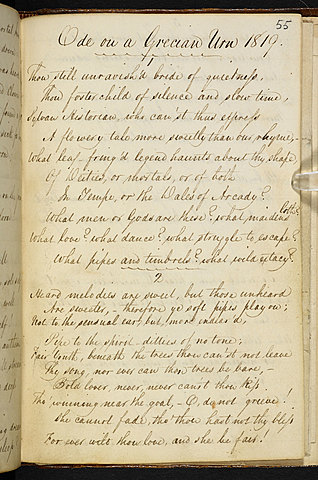 55
Ode on a Grecian Urn 1819.
1
Thou still unravish'd bride of quietness,
Thou foster child of silence and slow time,
Sylvan Historian, who can'st thus express
A flowery tale more sweetly than our rhyme, –
What leaf-fring'd legend haunts about thy shape
Of Deities, or mortals, or of both
In Tempe, or the Dales of Arcady?
What men or Gods are these? what maidens loth?
What love? what dance? what struggle to escape?
What pipes and timbrels? what wild extacy?
2
Heard melodies are sweet, but those unheard
Are sweeter, – therefore ye soft pipes play on;
Not to the sensual ear, but, more endear'd,
Pipe to the spirit – ditties of no tone;
Fair youth, beneath the trees thou can'st not leave
Thy song, nor ever can those trees be bare, –
Bold lover, never, never can'st thou kiss
Tho' winning near the goal, – O, do not grieve!
She cannot fade, tho' thou hast not thy bliss
For ever wilt thou love, and she be fair!